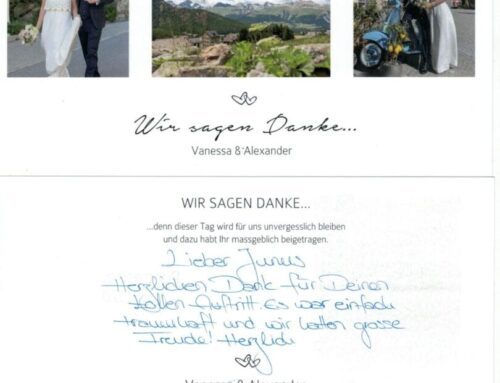 Wir sagen Danke...
Vanessa & Alexander
WIR SAGEN DANKE...
...denn dieser Tag wird für uns unvergesslich bleiben
und dazu habt Ihr massgeblich beigetragen.
Lieber Junus
Herzlichen Dank für Deinen
tollen Auftritt. Es war einfach
traumhaft und wir hatten grosse
Freude! Herzlich
Vanessa & Alexander